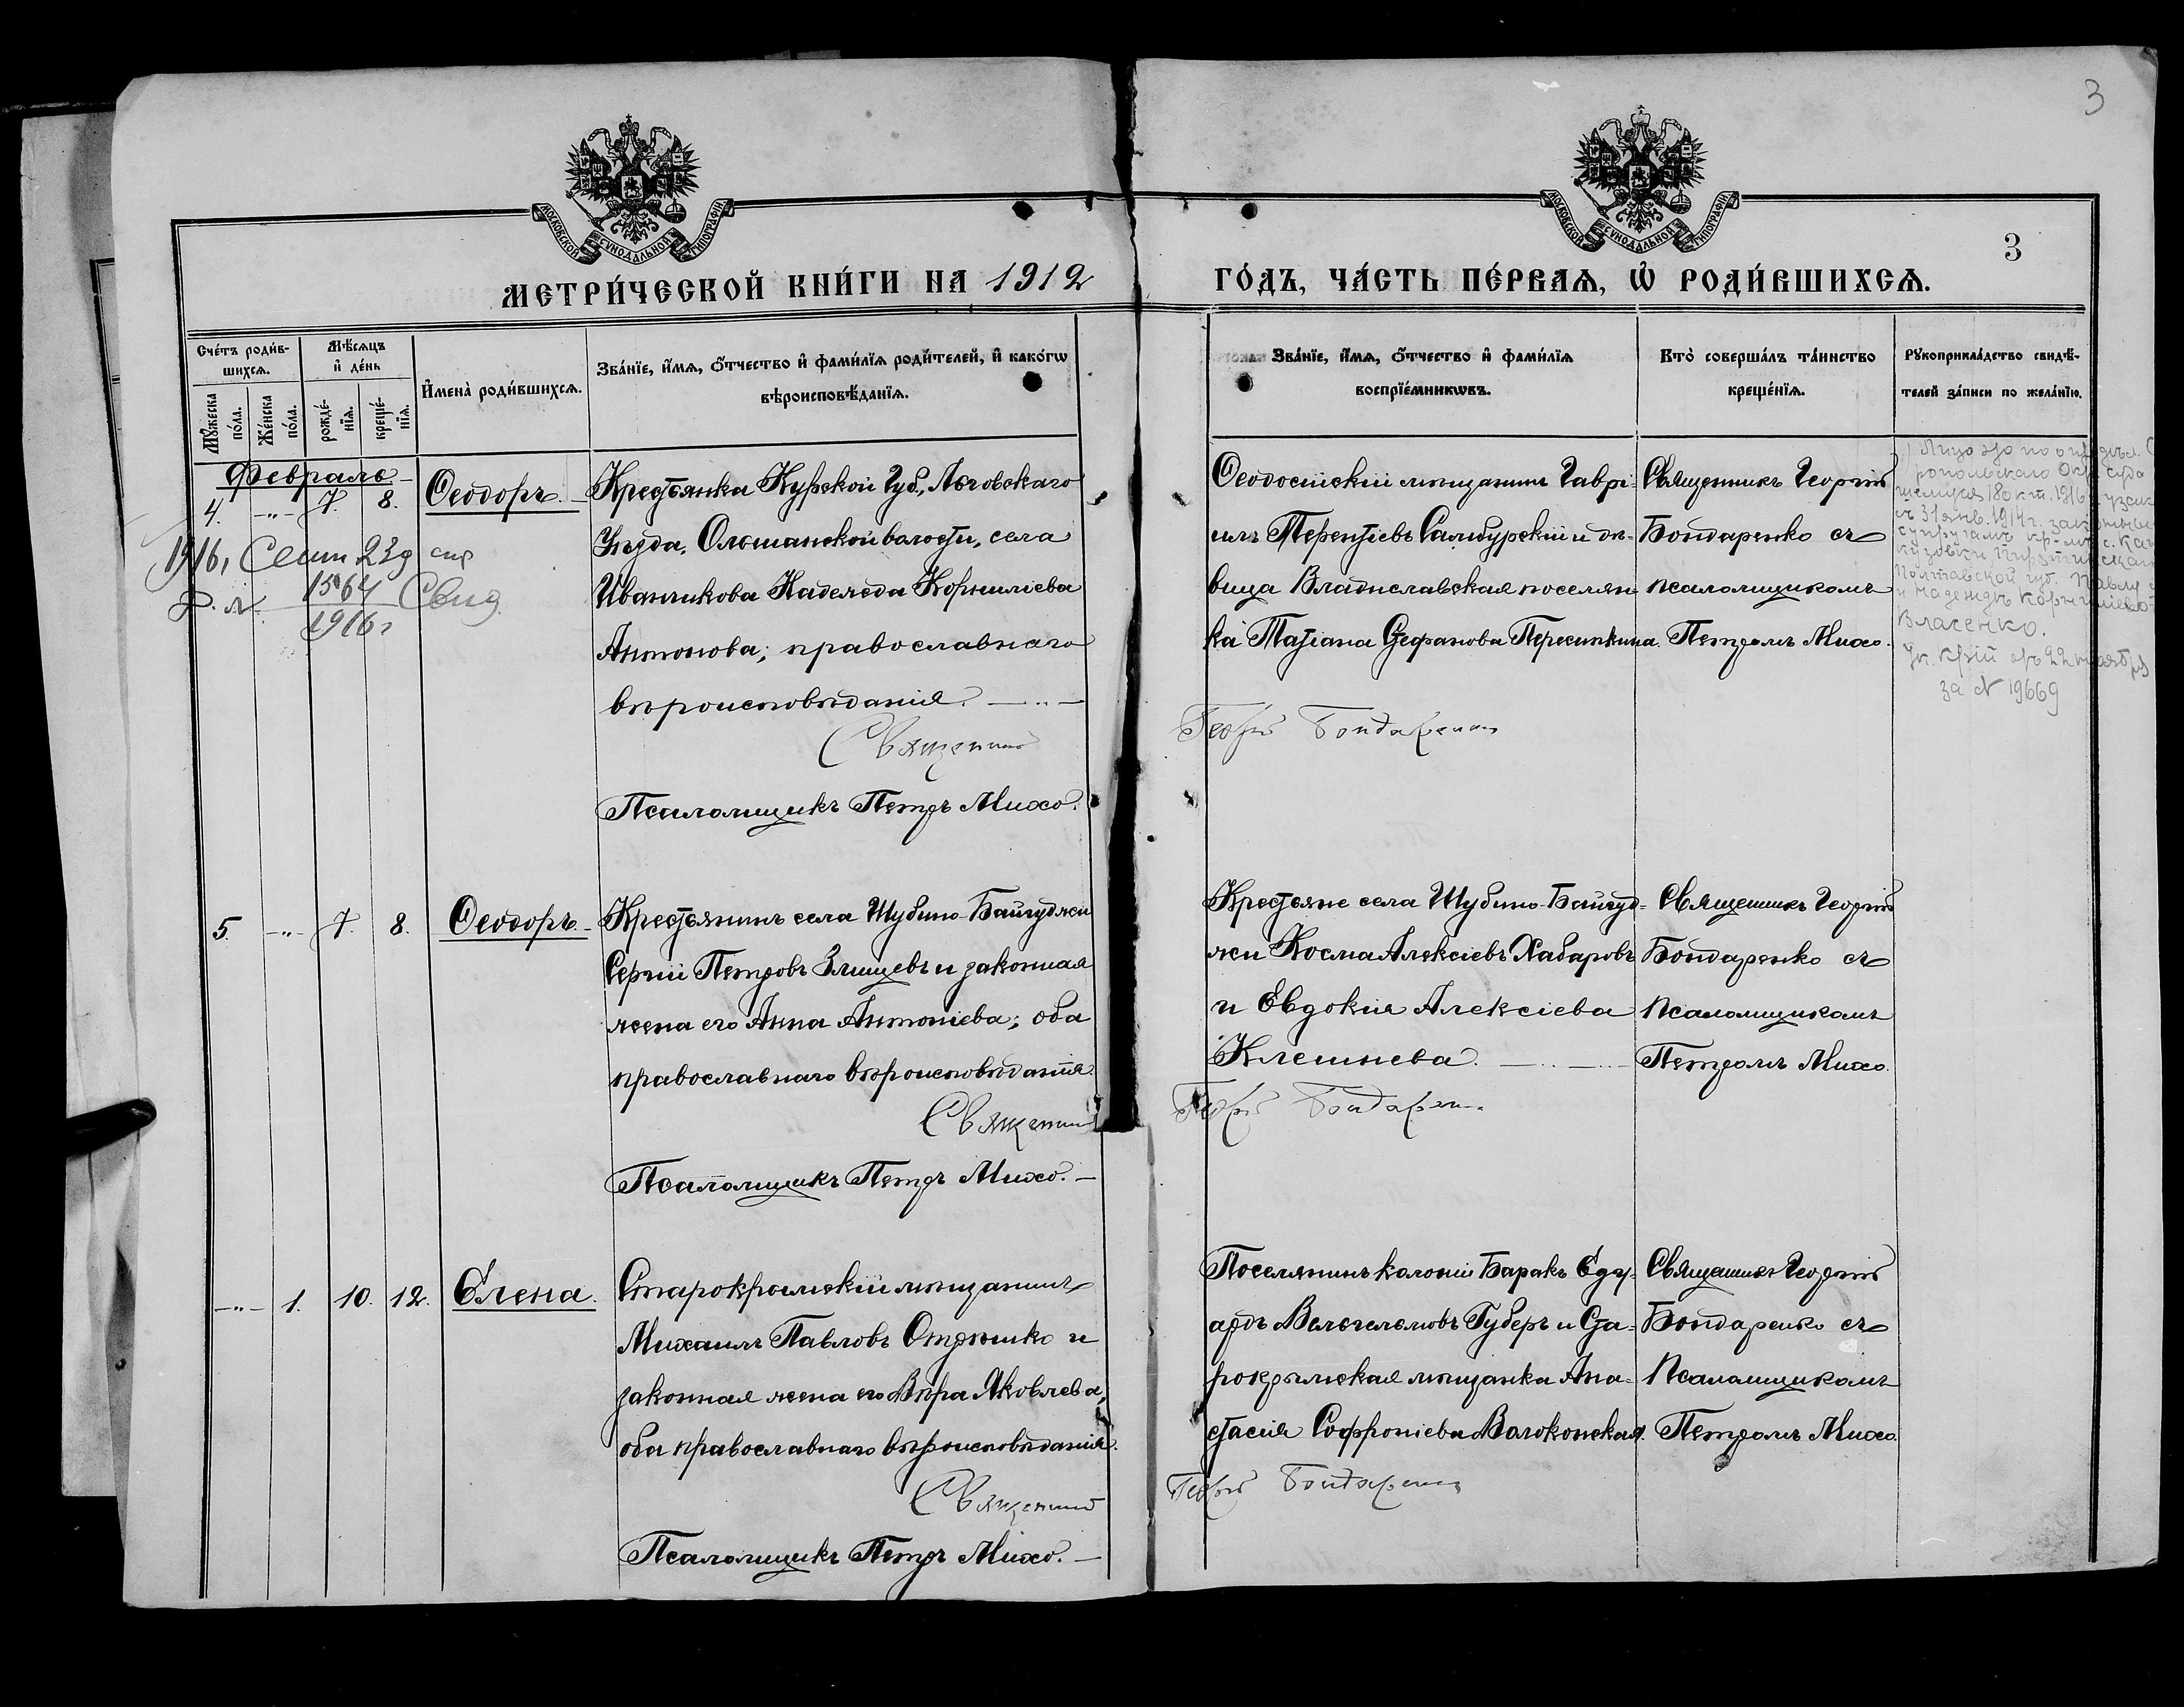 3
МОСКОВСКОЙ СѴНОДАЛЬНОЙ ТИПОГРАФІИ
МОСКОВСКОЙ СѴНОДАЛЬНОЙ ТИПОГРАФІИ
3
МЕТРИ́ЧЕСКОЙ КНИ́ГИ НА 1912
ГО́ДЪ, ЧА́СТЬ ПЕ́РВАѦ, Ѡ҆ РОДИ́ВШИХСѦ.
Сче́тъ роди́в-
шихсѧ.
Мꙋ́жеска по́ла.
Же́нска по́ла.
Мѣ́сѧцъ
и҆ де́нь
рожде́-нїѧ.
креще́-нїѧ.
И҆мена̀ роди́вшихсѧ.
Зва́нїе, и҆́мѧ, ѻ҆́тчество и҆ фами́лїѧ роди́телей, и҆ како́гѡ
вѣроисповѣ́данїѧ.
Зва́нїе, и҆́мѧ, ѻ҆́тчество и҆ фами́лїѧ
воспрїе́мникѡвъ.
Кто̀ соверша́лъ та́инство
креще́нїѧ.
Рꙋкоприкла́дство свидѣ́-
телей за́писи по жела́нїю.
Февраль
4. -"- 7. 8. Ѳеодоръ.
Крестьянка Курской Губ., Льговскаго
Уѣзда, Ольшанской волости, села
Иванчикова Надежда Корнилiева
Антонова; православнаго
вѣроисповѣданія.
Священник
Псаломщикъ Петръ Михо.
Ѳеодосійскій мѣщанинъ Гаврі-
илъ Терентіевъ Самбурскій и дѣ-
вица Владиславская поселян-
ка Татіана Стефанова Пересыпкина.
Георгій Бондаренко
Священникъ Георгій
Бондаренко съ
псаломщикомъ
Петромъ Михо.
Лицо это по опредѣл.
ропольскаго Окр. Суда
18 окт. 1916
съ 31 янв. 1914 г.
супругамъ кр-мъ с.
Полтавской губ. Павлу
и Надеждѣ Корнилiевой
Власенко.
Ук. 22 ноября
за № 19669
1916, Сент 23д
1564
1916 г
Свид.
5. -"- 7. 8. Ѳеодоръ.
Крестьянинъ села Шубино-Байгуджи
Сергій Петровъ Змицевъ и законная
жена его Анна Антоніева; оба
православнаго вѣроисповѣданія.
Священник
Псаломщикъ Петръ Михо.
Крестьяне села Шубино-Байгуд-
жи Косма Алексіевъ Хабаровъ
и Евдокія Алексіева
Клешнева.
Георгій Бондаренко
Священникъ Георгій
Бондаренко съ
псаломщикомъ
Петромъ Михо.
-"- 1. 10. 12. Елена.
Старокрымскій мѣщанинъ
Михаилъ Павловъ Отрѣшко и
законная жена его Вѣра Яковлева,
оба православнаго вѣроисповѣданія.
Священник
Псаломщикъ Петръ Михо.
Поселянинъ колоніи Баракъ Эду-
ардъ Вильгельмовъ Губеръ и Ста-
рокрымская мѣщанка Ана-
стасія Софроніева Волоконская.
Георгій Бондаренко
Священникъ Георгій
Бондаренко съ
Псаломщикомъ
Петромъ Михо.